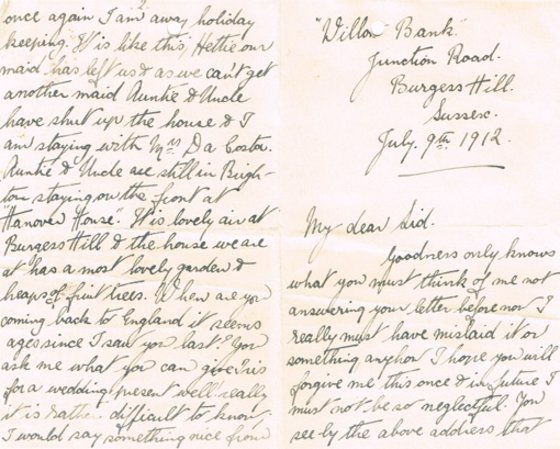 "Willow Bank"
Junction Road.
Burgess Hill.
Sussex.
July. 9th 1912.
My dear Sid.
Goodness only knows
what you must think of me not
answering your letter before now I
really must have mislaid it or
something anyhow I hope you will
forgive me this once & in future I
must not be so neglectful. You
see by the above address that
2
once again I am away holiday
keeping. It is like this, Hettie our
maid has left us & as we can't get
another maid Auntie & Uncle
have shut up the house & I
am staying with Mrs Da Costa.
Auntie & Uncle are still in Brigh-
ton staying on the front at
"Hanover House". It is lovely air at
Burgess Hill & the house we are
at has a most lovely garden &
heaps of fruit trees. When are you
coming back to England it seems
ages since I saw you last? You
ask me what you can give us
for a wedding present well really
it is rather difficult to know.
I would say something nice from